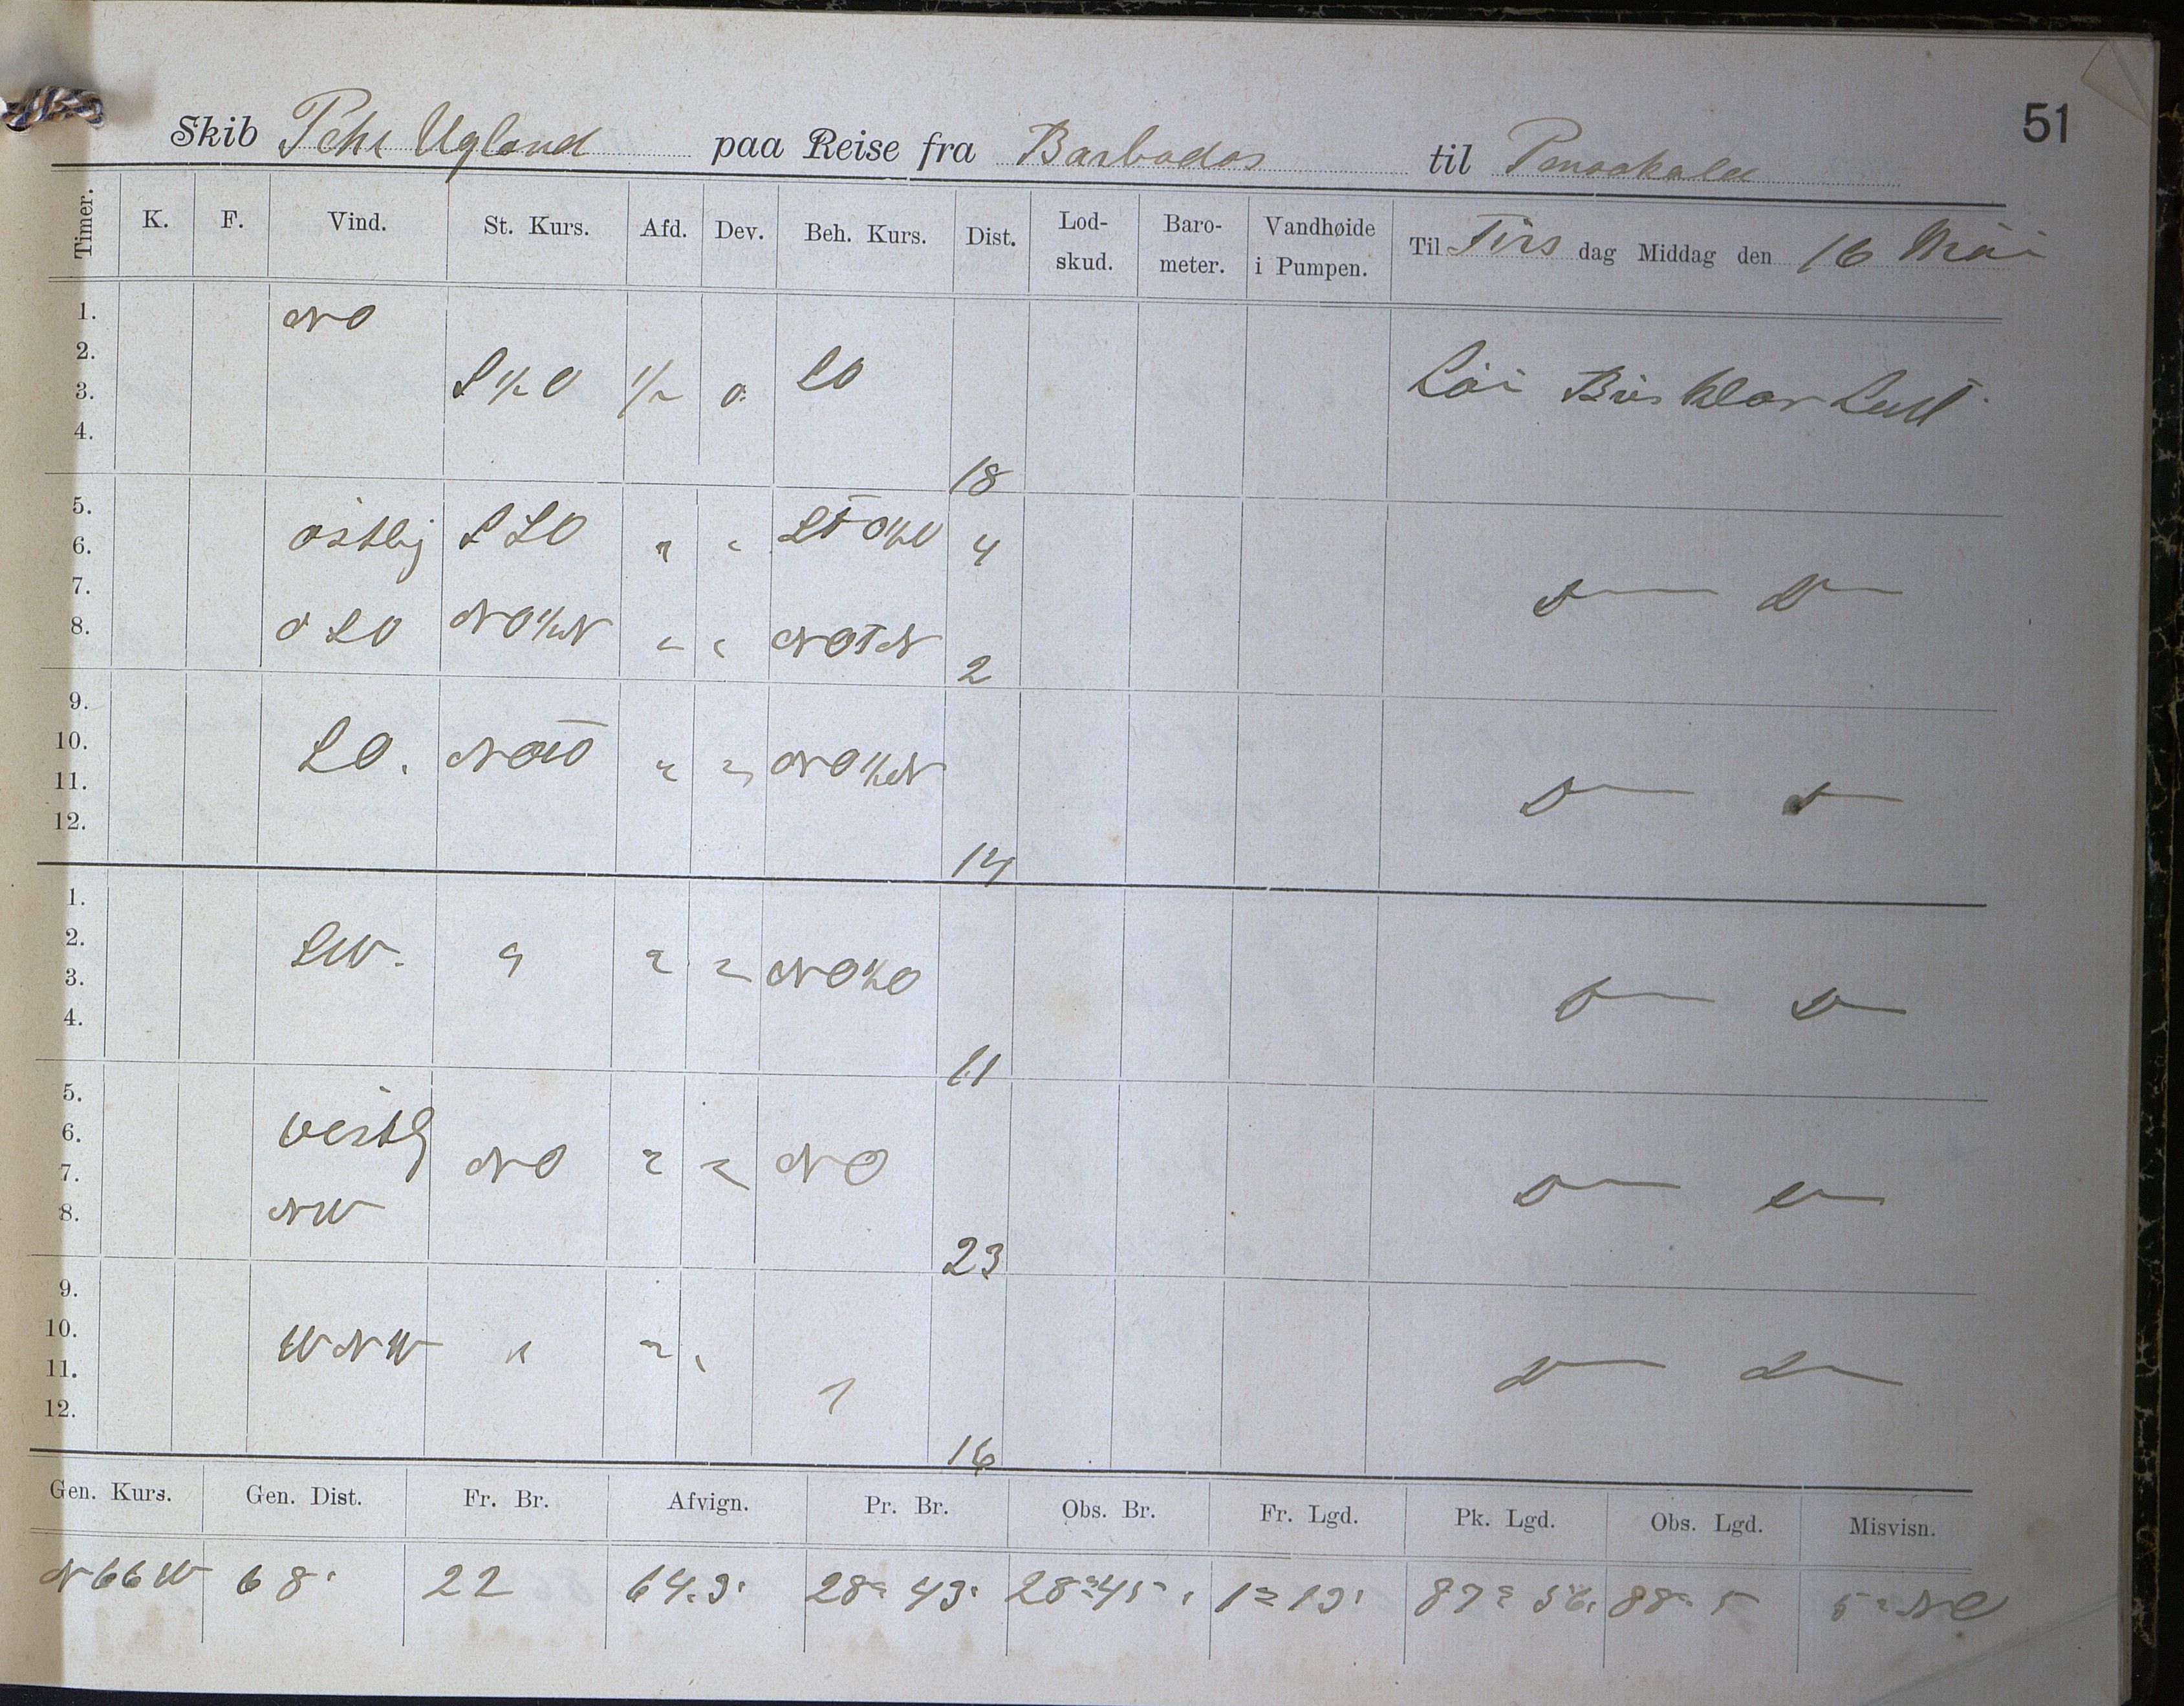 51
Skib Pehr Ugland paa Reise fra Barbados til Pensakola
Timer. K. F. Vind. St. Kurs. Afd. Dev. Beh. Kurs. Dist. Lod-skud. Baro-meter. Vandhøide i Pumpen. Til Tirs dag Middag den 16 Mai
1. NO
2.
3. S ½ O ½ 0 SO Lai Bris Klar Luft
4. 18
5.
6. østlig SSO " " 4
7.
8. O SO NO½N " " NOTN 2
9.
10. SO. NOTO " " NO½N
11.
12. 14
1.
2. SW. " " " NO½O
3.
4. 11
5.
6. vestlig
7. NO " " NO
8. NW 23
9.
10. WNW " " "
11.
12. " 16
Gen. Kurs. Gen. Dist. Fr. Br. Afvign. Pr. Br. Obs. Br. Fr. Lgd. Pk. Lgd. Obs. Lgd. Misvisn.
N66W 68' 22 64.3' 28° 43' 28° 45' 1° 13' 87° 56' 88° 5 5° NO